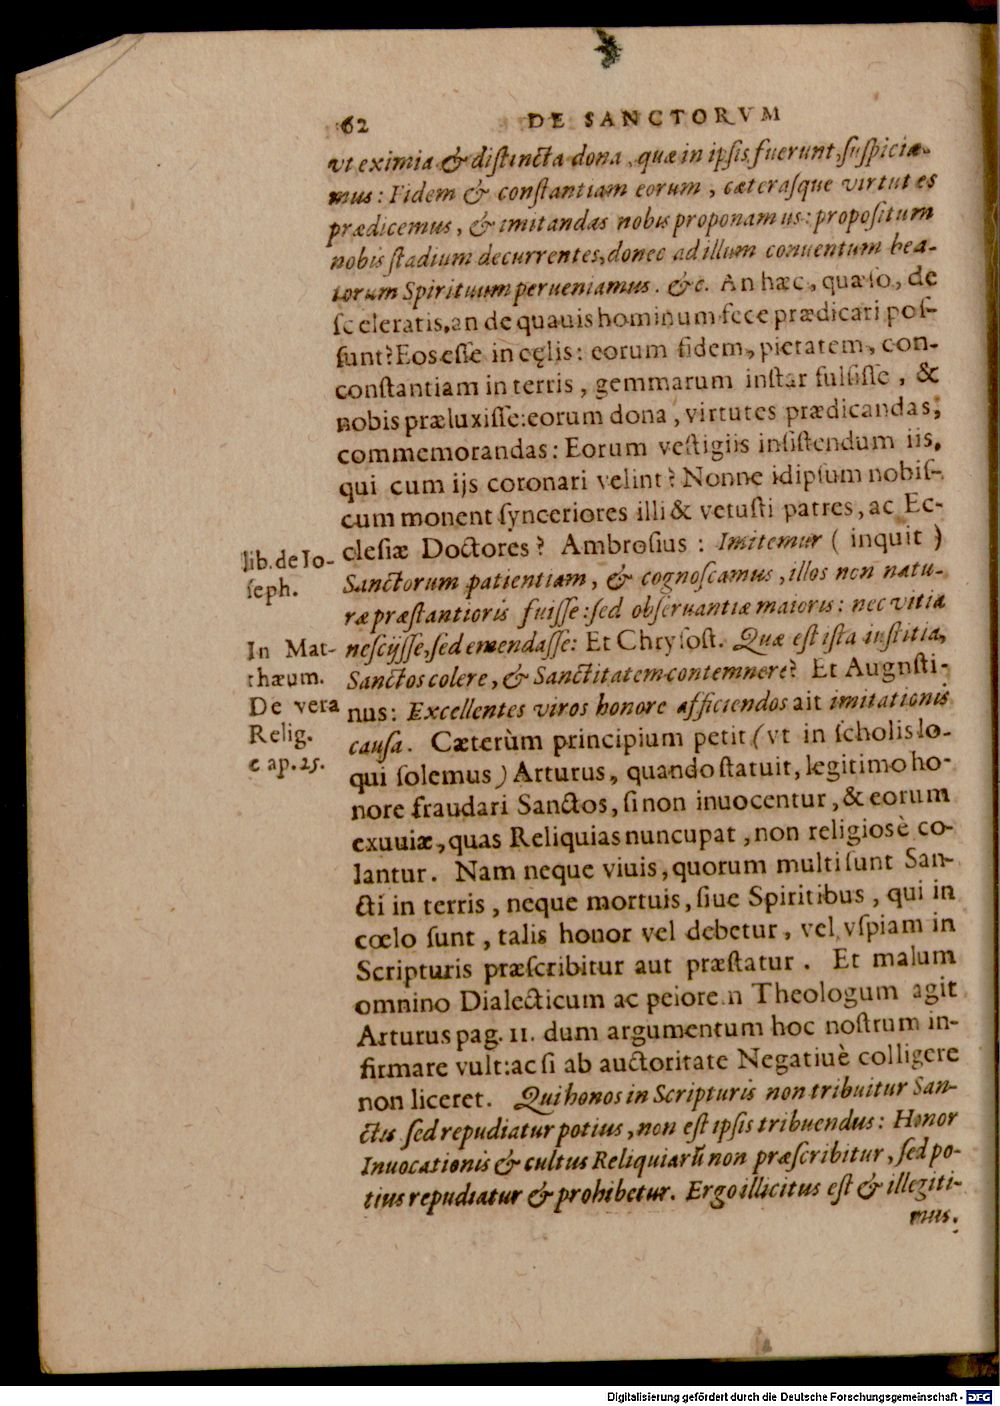 62 DE SANCTORVM
vt eximia & distincta dona, quæ in ipsis fuerunt, suspicia-
mus: Fidem & constantiam eorum, cæterasque virtutes
prædicemus, & imitandas nobis proponamus: propositum
nobis stadium decurrentes, donec ad illum conuentum bea-
torum Spirituum perueniamus. &c. An hæc, quæso, de
sceleratis, an de quauis hominum fece prædicari pos-
sunt? Eos esse in cęlis: eorum fidem, pietatem, con-
constantiam in terris, gemmarum instar fulsisse, &
nobis præluxisse: eorum dona, virtutes prædicandas,
commemorandas: Eorum vestigiis insistendum iis,
qui cum ijs coronari velint? Nonne idipsum nobis-
cum monent synceriores illi & vetusti patres, ac Ec-
clesiæ Doctores? Ambrosius: Imitemur ( inquit )
lib. de Io-
seph.
Sanctorum patientiam, & cognoscamus, illos non natu-
ræ præstantioris fuisse: sed obseruantiæ maioris: nec vitia
nescijsse, sed emendasse: Et Chrysost. Quæ est ista iustitia,
In Mat-
thæum.
Sanctos colere, & Sanctitatem contemnere? Et Augusti-
nus: Excellentes viros honore afficiendos ait imitationis
De vera
Relig.
cap. 25.
causa. Cæterùm principium petit (vt in scholis lo-
qui solemus) Arturus, quando statuit, legitimo ho-
nore fraudari Sanctos, si non inuocentur, & eorum
exuuiæ, quas Reliquias nuncupat, non religiosè co-
lantur. Nam neque viuis, quorum multi sunt San-
cti in terris, neque mortuis, siue Spiritibus, qui in
cœlo sunt, talis honor vel debetur, vel vspiam in
Scripturis præscribitur aut præstatur. Et malum
omnino Dialecticum ac peiorem Theologum agit
Arturus pag. 11. dum argumentum hoc nostrum in-
firmare vult: ac si ab auctoritate Negatiuè colligere
non liceret. Qui honos in Scripturis non tribuitur San-
ctis sed repudiatur potius, non est ipsis tribuendus: Honor
Inuocationis & cultus Reliquiarū non præscribitur, sed po-
tius repudiatur & prohibetur. Ergo illicitus est & illegiti-
mus.
Digitalisierung gefördert durch die Deutsche Forschungsgemeinschaft - DFG